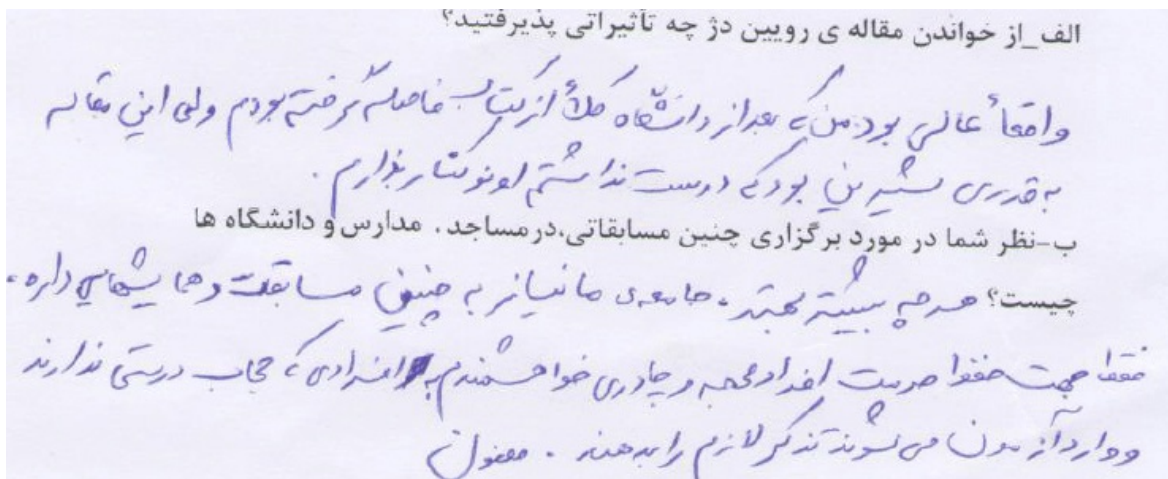 الف_از خواندن مقاله ی رویین دژ چه تاثیراتی پذیرفتید؟
واقعاً عالی بود. من که بعد از دانشگاه کلاً از کتاب فاصله گرفته بودم ولی این مقاله
به قدری شیرین بود که دوست نداشتم اونو کنار بذارم.
ب-نظر شما در مورد برگزاری چنین مسابقاتی،درمساجد. مدارس و دانشگاه ها
چیست؟ هر چه بیشتر بهتر. جامعه ی ما نیاز به چنین مسابقات و همایشهایی داره،
فقط جهت حفظ حرمت افراد محجبه و چادری خواهشمندم به افرادی که حجاب درستی ندارند
و وارد آزمون می شوند تذکر لازم را بدهند. ممنون